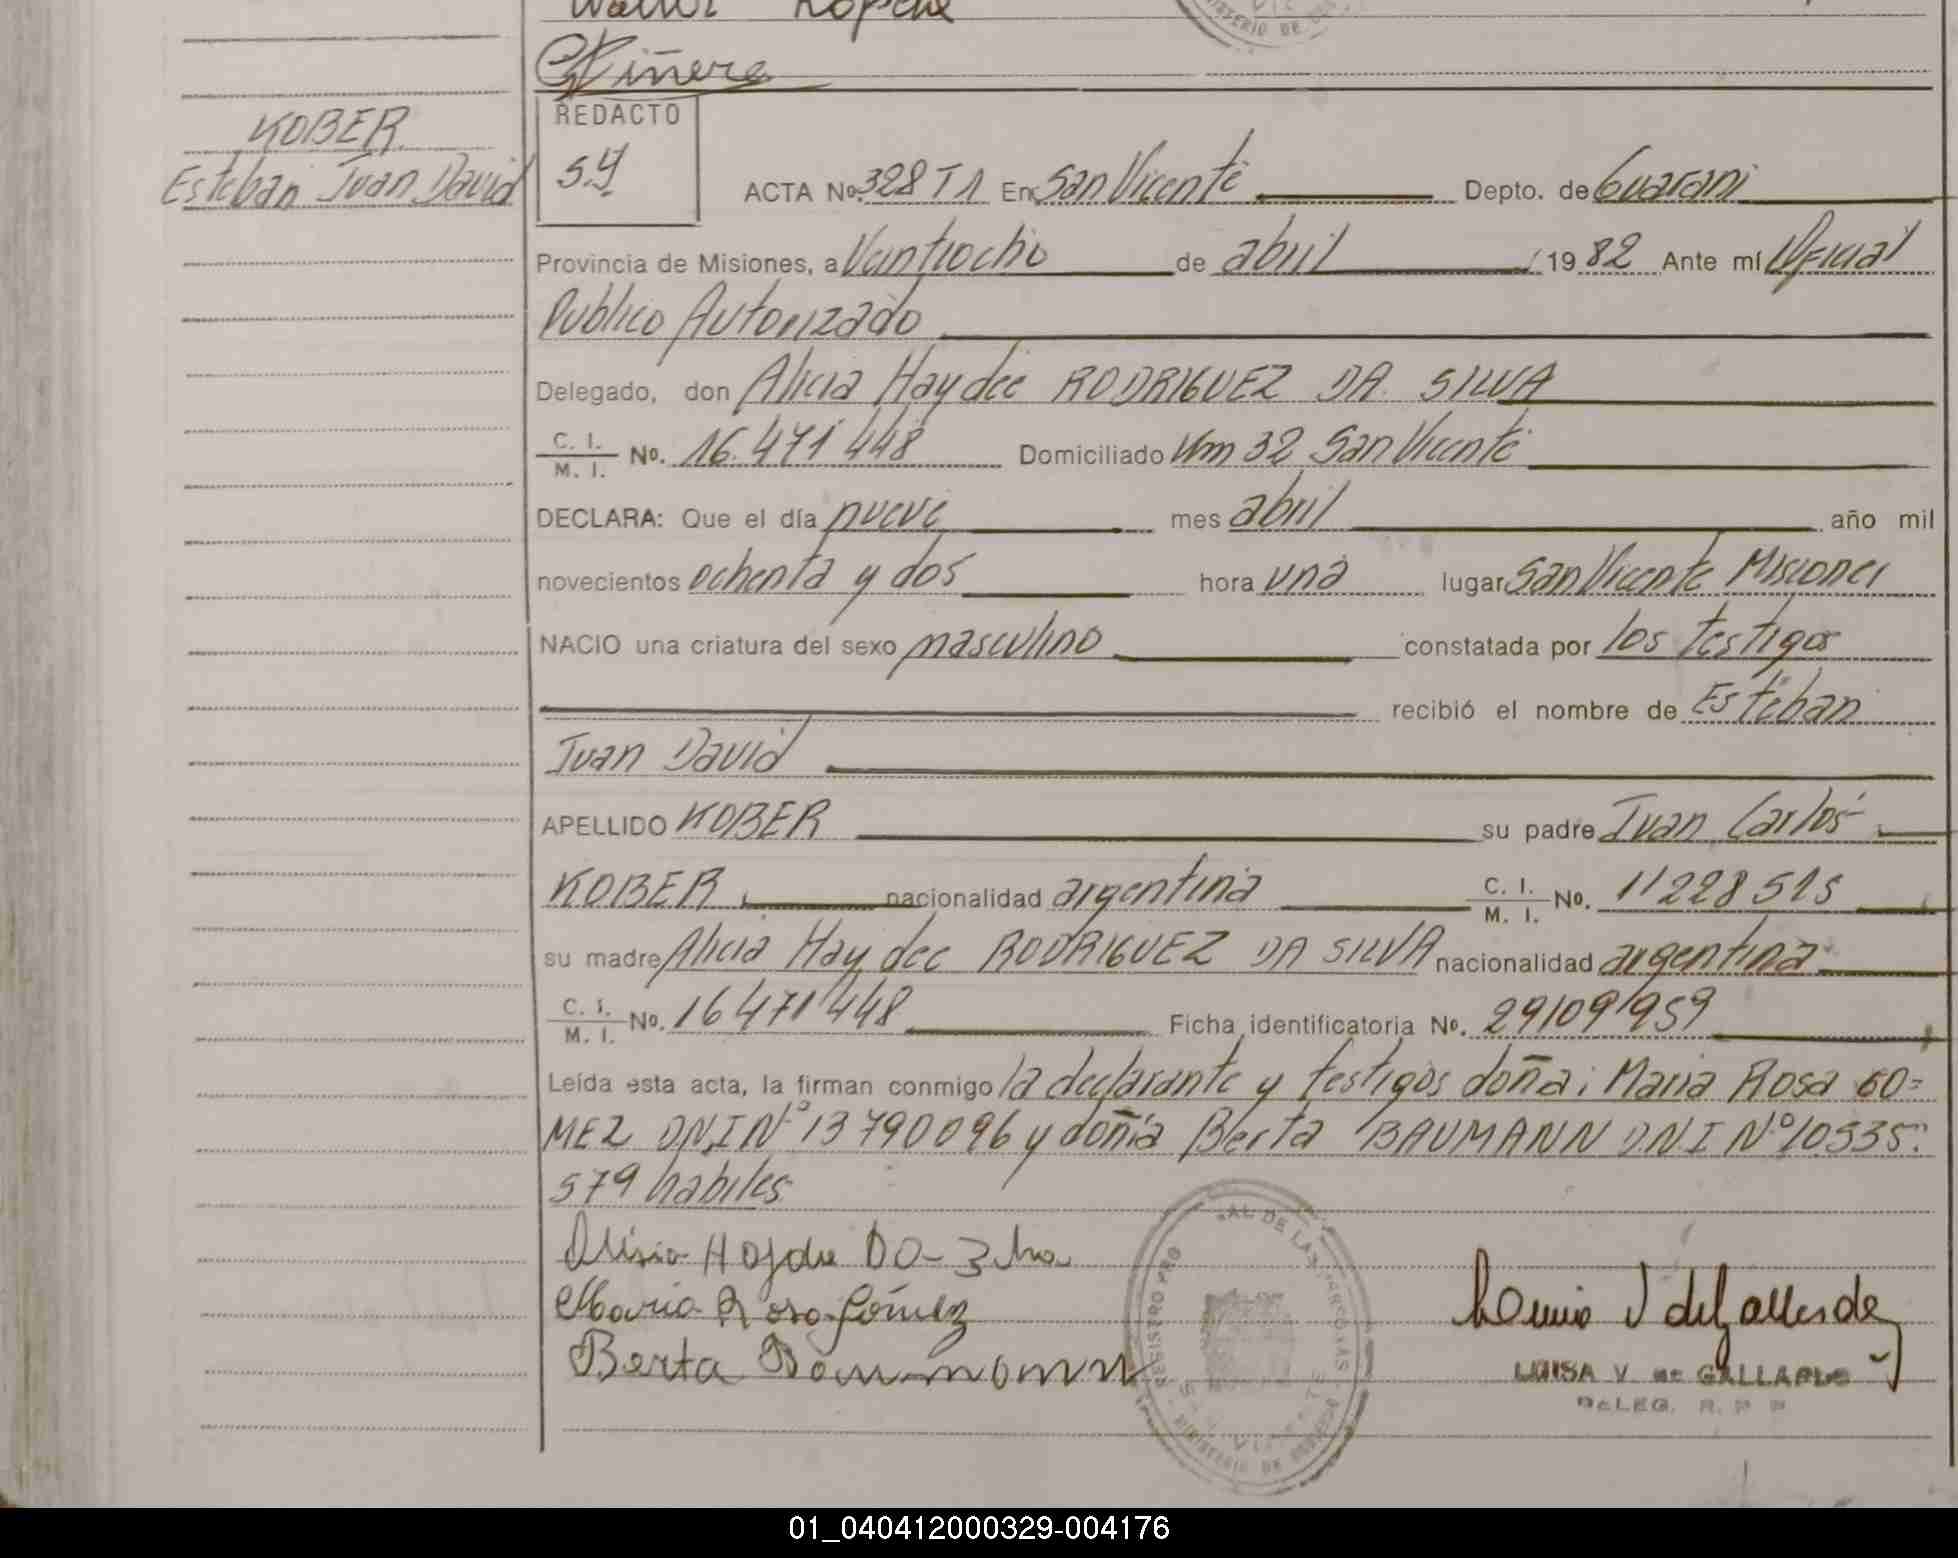 Piñero
KOBER
Esteban Juan David
REDACTO
S.Y
ACTA No. 328 T1 En San Vicente Depto. de Guarani
Provincia de Misiones, a Veintiocho de abril 19 82 Ante mí Oficial
Publico Autorizado
Delegado, don Alicia Haydee RODRIGUEZ DA. SILVA
C. I. / M. I. No. 16.471 448 Domiciliado Km 32 San Vicente
DECLARA: Que el día nueve mes abril año mil
novecientos ochenta y dos hora una lugar San Vicente Misiones
NACIO una criatura del sexo masculino constatada por los testigos
recibió el nombre de Esteban
Juan David
APELLIDO KOBER su padre Juan Carlos
KOBER nacionalidad argentina C. I. / M. I. No. 11228515
su madre Alicia Haydee RODRIGUEZ DA SILVA nacionalidad argentina
C. I. / M. I. No. 16471448 Ficha identificatoria No. 29109959
Leída esta acta, la firman conmigo la declarante y testigos doña: Maria Rosa GO=
MEZ DNI Nº 13790096 y doña Berta BAUMANN D.N.I Nº 10.535.
579 habiles
Maria Rosa Gómez
Berta Baumann
REGISTRO PRO AL DE LAS PERSONAS
MINISTERIO DE GOBIERNO
LUISA V. de GALLARDO
DELEG. R. P. P.
01_040412000329-004176